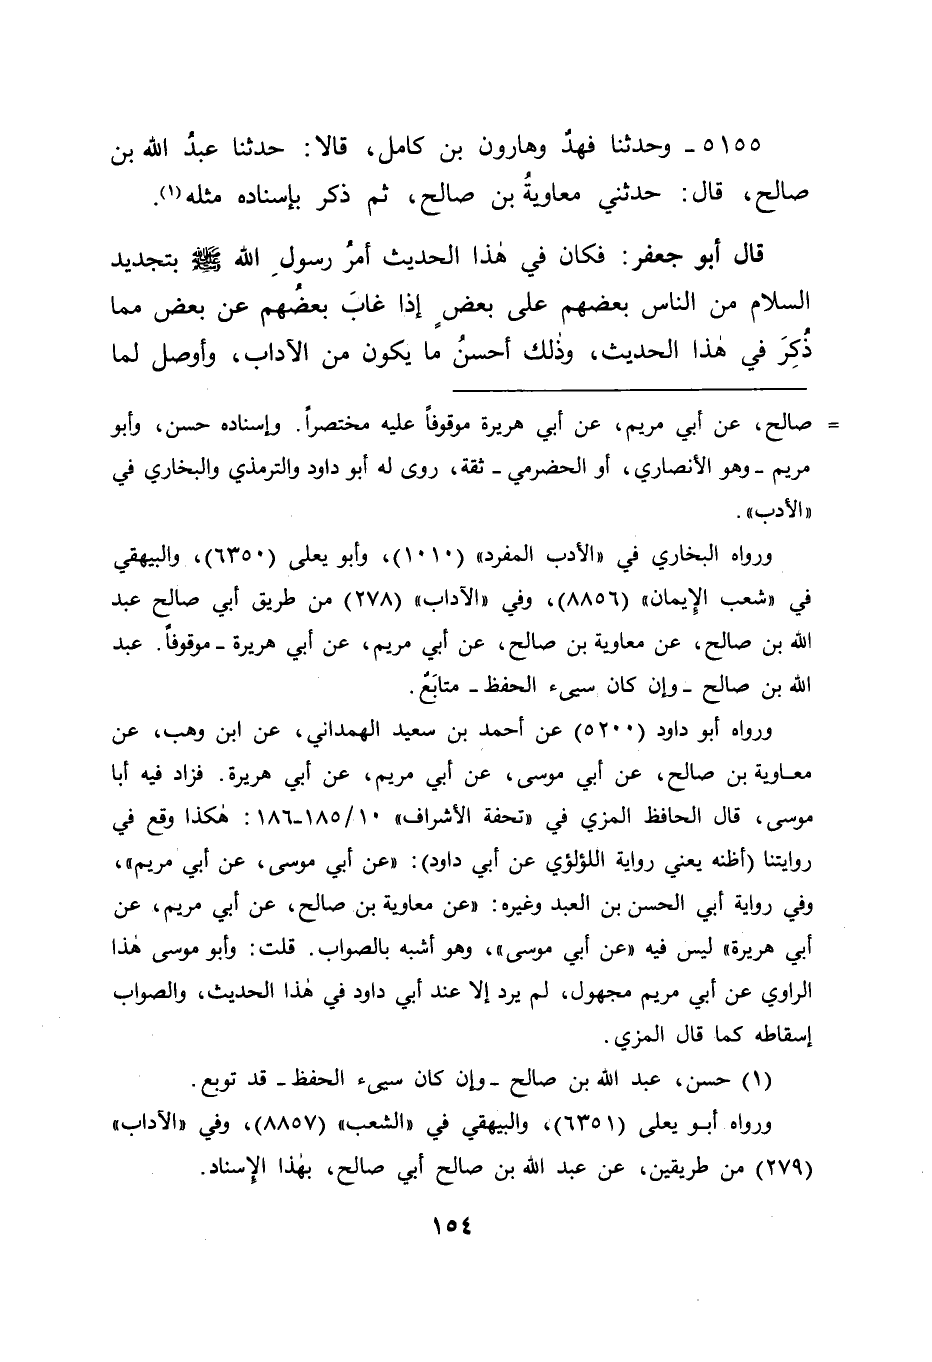 ٥١٥٥ ـ وحدثنا فهدٌ وهارون بن كامل، قالا: حدثنا عبدُ الله بن
صالح، قال: حدثني معاويةُ بن صالح، ثم ذكر بإسناده مثله(١).
قال أبو جعفر: فكان في هٰذا الحديث أمرُ رسولِ الله ﷺ بتجديد
السلام من الناس بعضهم على بعضٍ إذا غابَ بعضُهم عن بعض مما
ذُكِرَ في هٰذا الحديث، وذٰلك أحسنُ ما يكون من الآداب، وأوصل لما
= صالح، عن أبي مريم، عن أبي هريرة موقوفاً عليه مختصراً. وإسناده حسن، وأبو
مريم ـ وهو الأنصاري، أو الحضرمي ـ ثقة، روى له أبو داود والترمذي والبخاري في
«الأدب».
ورواه البخاري في «الأدب المفرد» (١٠١٠)، وأبو يعلى (٦٣٥٠)، والبيهقي
في «شعب الإيمان» (٨٨٥٦)، وفي «الآداب» (٢٧٨) من طريق أبي صالح عبد
الله بن صالح، عن معاوية بن صالح، عن أبي مريم، عن أبي هريرة ـ موقوفاً. عبد
الله بن صالح ـ وإن كان سيىء الحفظ ـ متابَعٌ.
ورواه أبو داود (٥٢٠٠) عن أحمد بن سعيد الهمداني، عن ابن وهب، عن
معاوية بن صالح، عن أبي موسى، عن أبي مريم، عن أبي هريرة. فزاد فيه أبا
موسى، قال الحافظ المزي في «تحفة الأشراف» ١٠/١٨٥ـ١٨٦: هٰكذا وقع في
روايتنا (أظنه يعني رواية اللؤلؤي عن أبي داود): «عن أبي موسى، عن أبي مريم»،
وفي رواية أبي الحسن بن العبد وغيره: «عن معاوية بن صالح، عن أبي مريم، عن
أبي هريرة» ليس فيه «عن أبي موسى»، وهو أشبه بالصواب. قلت: وأبو موسى هٰذا
الراوي عن أبي مريم مجهول، لم يرد إلا عند أبي داود في هٰذا الحديث، والصواب
إسقاطه كما قال المزي.
(١) حسن، عبد الله بن صالح ـ وإن كان سيىء الحفظ ـ قد توبع.
ورواه أبو يعلى (٦٣٥١)، والبيهقي في «الشعب» (٨٨٥٧)، وفي «الآداب»
(٢٧٩) من طريقين، عن عبد الله بن صالح أبي صالح، بهٰذا الإسناد.
١٥٤